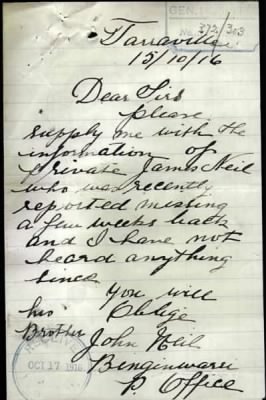 Tarraville
15/10/16
Dear Sirs
please
supply me with the
information of
Private James Neil
who was recently
reported missing
a few weeks back
and I have not
heard anything
since
you will
his Oblige
Brother John Neil
P. Office
OCT 17 1916